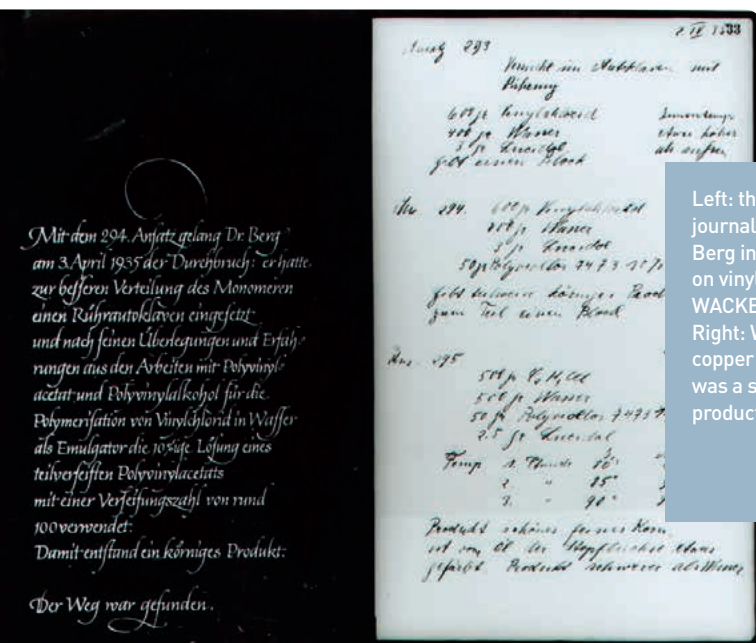 Mit dem 294. Ansatz gelang Dr. Berg
am 3. April 1935 der Durchbruch: er hatte
zur besseren Verteilung des Monomeren
einen Rührautoklaven eingesetzt
und nach seinen Überlegungen und Erfah-
rungen aus den Arbeiten mit Polyvinyl-
acetat und Polyvinylalkohol für die
Polymerisation von Vinylchlorid in Wasser
als Emulgator die 10%ige Lösung eines
teilverseiften Polyvinylacetats
mit einer Verseifungszahl von rund
100 verwendet:
Damit entstand ein körniges Produkt:
Der Weg war gefunden.
293
Versuch im Autoklaven mit
Rührung
600 gr Vinylchlorid
400 gr Wasser
3 gr Lucidol
gibt einen Block
etwas höher
294. 600 gr Vinylchlorid
gr Wasser
3 gr Lucidol
50 gr Polyviollos 7473
gibt
zum Teil einen Block
295
500 gr
500 gr Wasser
50 gr Polyviollos 7473
2.5 gr Lucidol
Temp 1. Stunde 80°
2. " 85°
3. " 90°
Produkt schönes feines Korn,
ist von Öl der Stopfbüchse etwas
gefärbt. Produkt schwerer als Wasser
Left: th
journal
Berg in
on viny
WACKE
Right: W
copper
was a s
produc